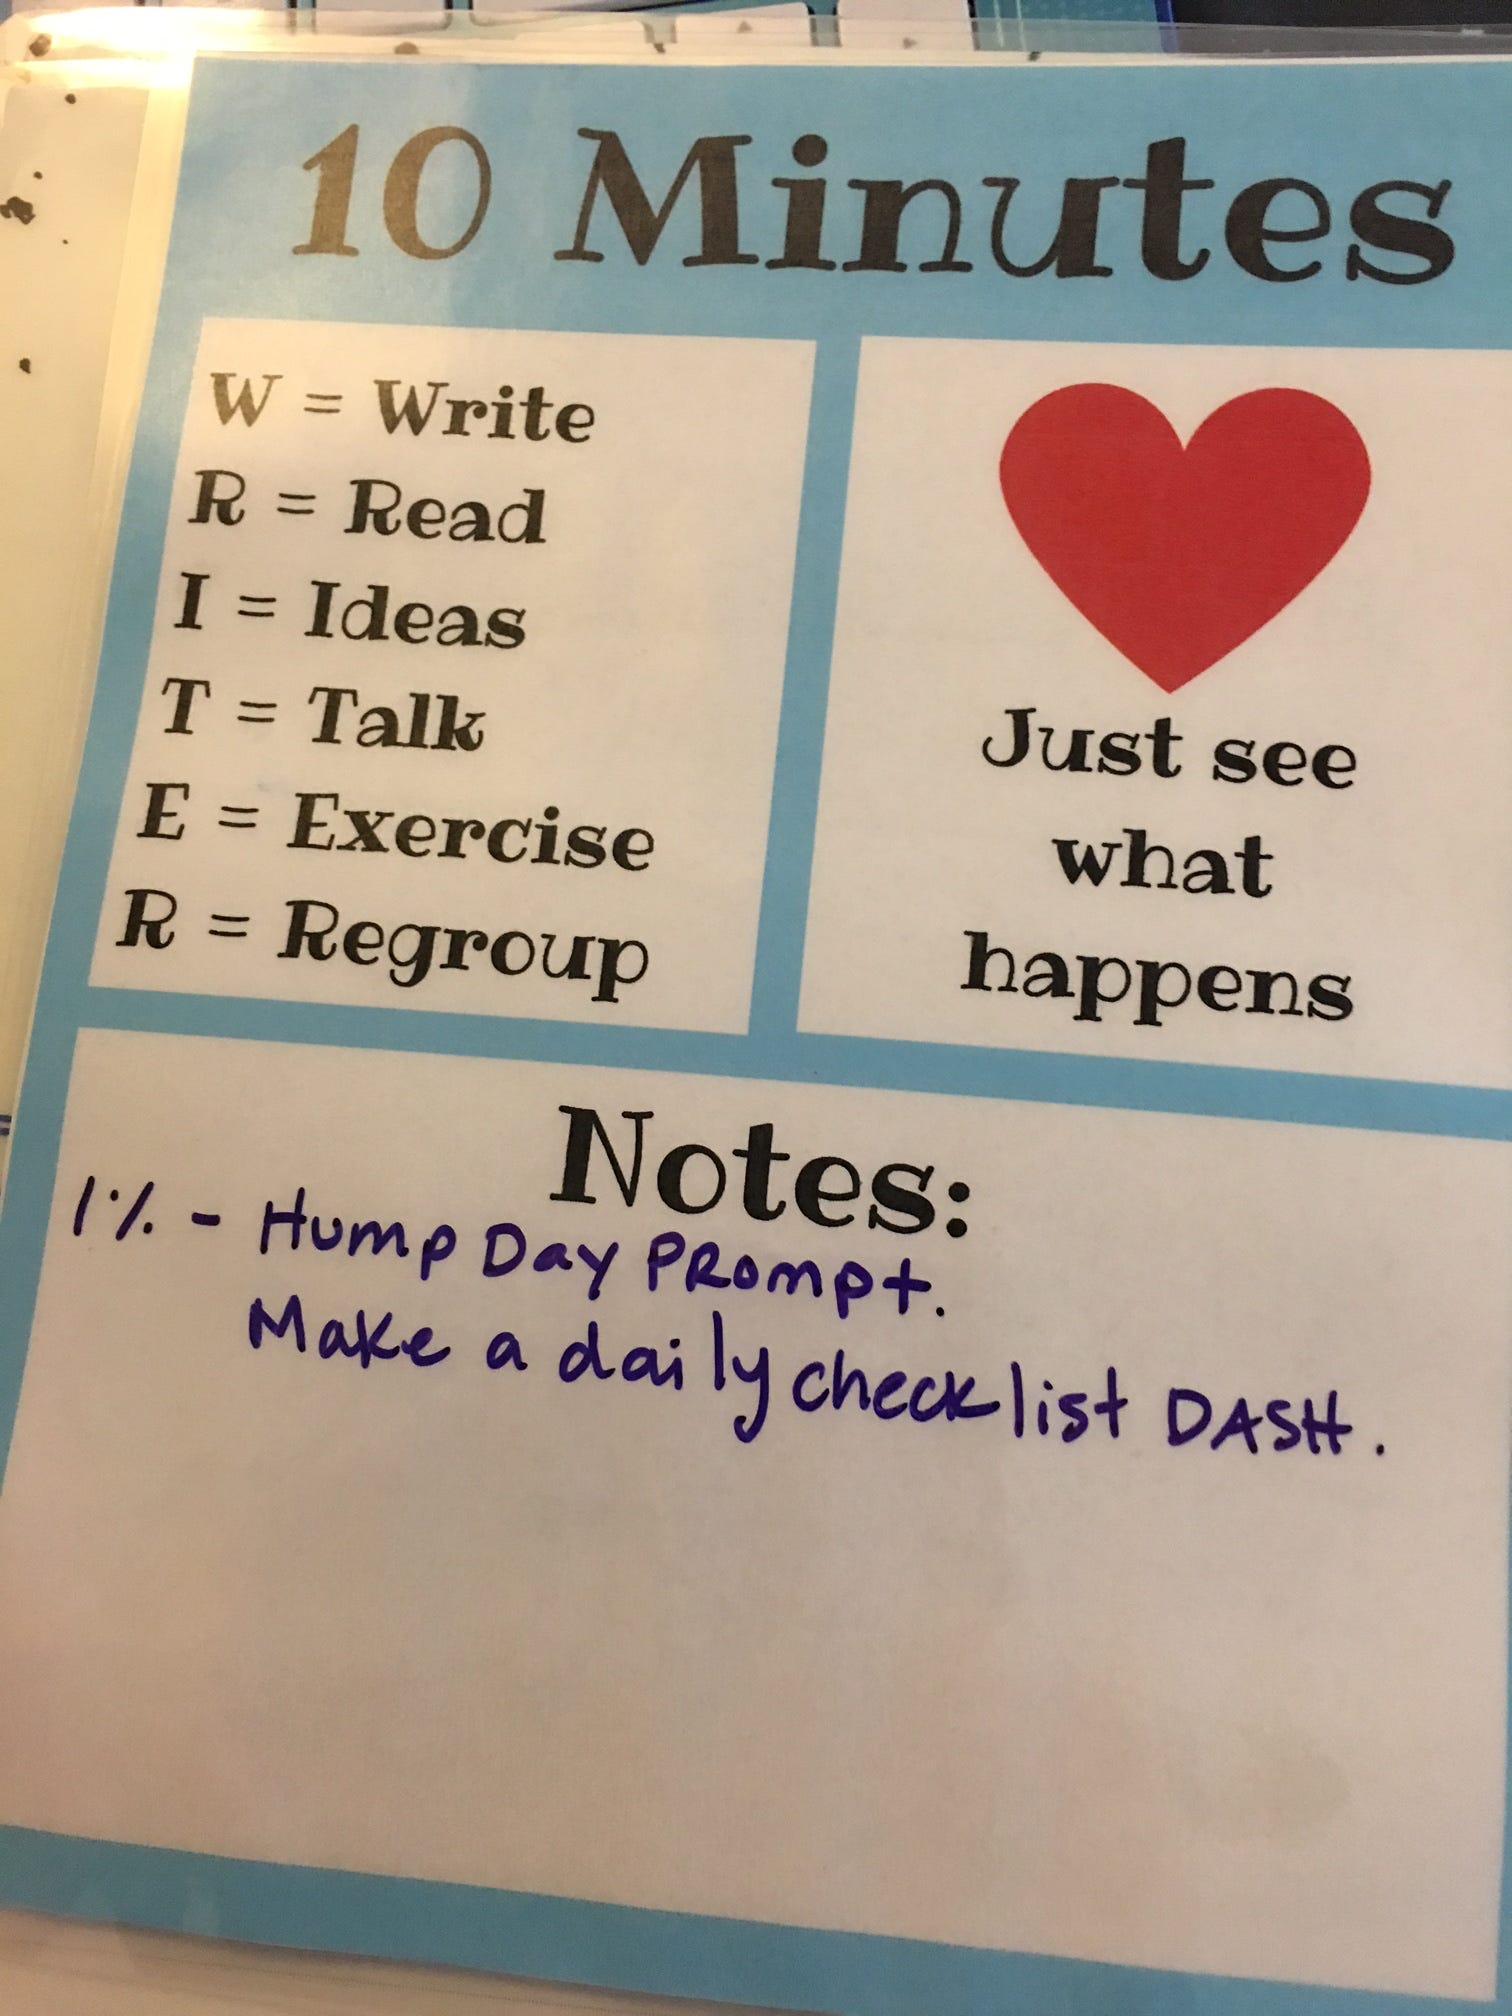 10 Minutes
W = Write
R = Read
I = Ideas
T = Talk
E = Exercise
R = Regroup
Just see
what
happens
Notes:
1% - Hump Day PRompt.
Make a daily checklist DASH.